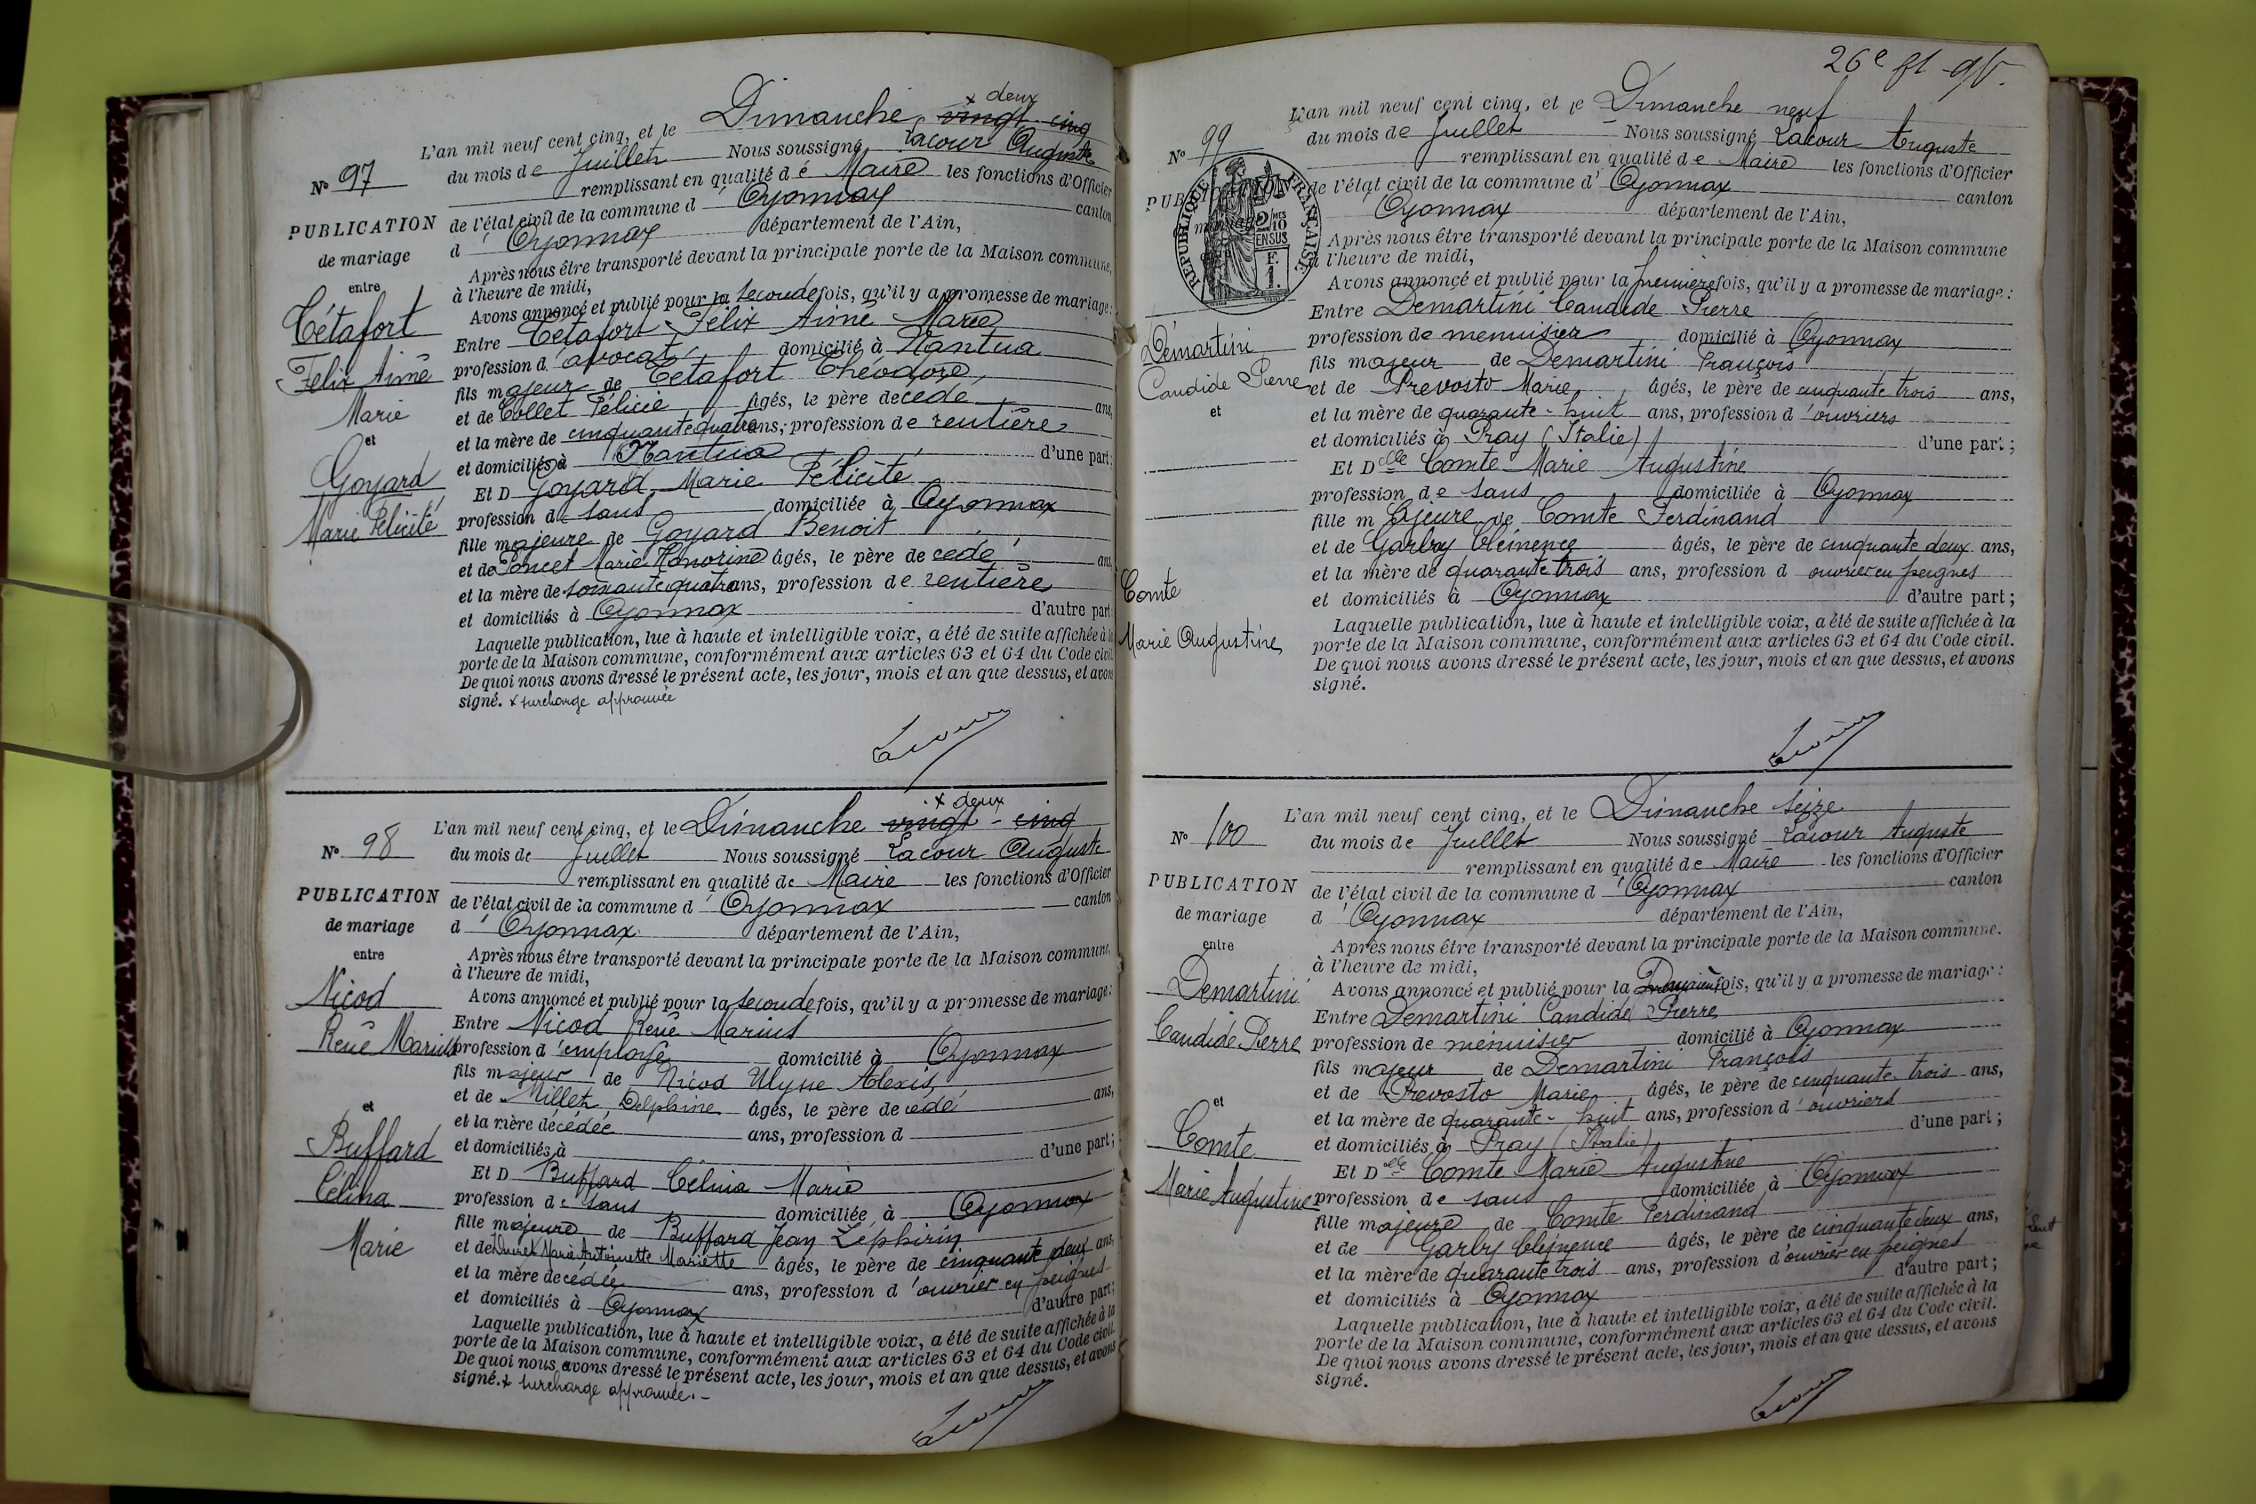 Nº 97
PUBLICATION
de mariage
entre
Tétafort
Félix Aimé
Marie
et
Goyard
Marie Félicité
L'an mil neuf cent cinq, et le Dimanche vingt-cinq x deux
du mois de Juillet Nous soussigné Lacour Auguste
remplissant en qualité de Maire les fonctions d'Officier
de l'état civil de la commune d'Oyonnax canton
d'Oyonnax département de l'Ain,
Après nous être transporté devant la principale porte de la Maison commune,
à l'heure de midi,
Avons annoncé et publié pour la seconde fois, qu'il y a promesse de mariage:
Entre Tétafort Félix Aimé Marie
profession d'avocat domicilié à Nantua
fils majeur de Tétafort Théodore
et de Collet Félicie âgés, le père décédé ans,
et la mère de cinquante quatre ans, profession de rentière
et domiciliés à Nantua d'une part;
Et D Goyard Marie Félicité
profession de sans domiciliée à Oyonnax
fille majeure de Goyard Benoit
et de Poncet Marie Honorine âgés, le père décédé ans
et la mère de soixante quatre ans, profession de rentière
et domiciliés à Oyonnax d'autre part
Laquelle publication, lue à haute et intelligible voix, a été de suite affichée à la
porte de la Maison commune, conformément aux articles 63 et 64 du Code civil.
De quoi nous avons dressé le présent acte, les jour, mois et an que dessus, et avons
signé. x surcharge approuvée
Nº 98
PUBLICATION
de mariage
entre
Nicod
René Marius
et
Buffard
Célina
Marie
L'an mil neuf cent cinq, et le Dimanche vingt-cinq x deux
du mois de Juillet Nous soussigné Lacour Auguste
remplissant en qualité de Maire les fonctions d'Officier
de l'état civil de la commune d'Oyonnax canton
d'Oyonnax département de l'Ain,
Après nous être transporté devant la principale porte de la Maison commune,
à l'heure de midi,
Avons annoncé et publié pour la seconde fois, qu'il y a promesse de mariage:
Entre Nicod René Marius
profession d'employé domicilié à Oyonnax
fils majeur de Nicod Ulysse Alexis
et de Millet Delphine âgés, le père décédé ans,
et la mère décédée ans, profession d
et domiciliés à d'une part;
Et D Buffard Célina Marie
profession de sans domiciliée à Oyonnax
fille majeure de Buffard Jean Zéphirin
et de Marie Antoinette Mariette âgés, le père de cinquante deux ans,
et la mère décédée ans, profession d'ouvrier en peignes
et domiciliés à Oyonnax d'autre part;
Laquelle publication, lue à haute et intelligible voix, a été de suite affichée à la
porte de la Maison commune, conformément aux articles 63 et 64 du Code civil.
De quoi nous avons dressé le présent acte, les jour, mois et an que dessus, et avons
signé. x surcharge approuvée.-
26e
Nº 99
PUBLICATION
de mariage
RÉPUBLIQUE FRANÇAISE
2/10 MES
EN SUS
1 F.
Demartini
Candide Pierre
et
Comte
Marie Augustine
L'an mil neuf cent cinq, et le Dimanche neuf
du mois de Juillet Nous soussigné Lacour Auguste
remplissant en qualité de Maire les fonctions d'Officier
de l'état civil de la commune d'Oyonnax canton
Oyonnax département de l'Ain,
Après nous être transporté devant la principale porte de la Maison commune
à l'heure de midi,
Avons annoncé et publié pour la première fois, qu'il y a promesse de mariage:
Entre Demartini Candide Pierre
profession de menuisier domicilié à Oyonnax
fils majeur de Demartini François
et de Prevosto Marie âgés, le père de cinquante trois ans,
et la mère de quarante-huit ans, profession d'ouvriers
et domiciliés à Pray (Italie) d'une part;
Et Delle Comte Marie Augustine
profession de sans domiciliée à Oyonnax
fille majeure de Comte Ferdinand
et de Garby Clémence âgés, le père de cinquante deux ans,
et la mère de quarante trois ans, profession d ouvrier en peignes
et domiciliés à Oyonnax d'autre part;
Laquelle publication, lue à haute et intelligible voix, a été de suite affichée à la
porte de la Maison commune, conformément aux articles 63 et 64 du Code civil.
De quoi nous avons dressé le présent acte, les jour, mois et an que dessus, et avons
signé.
Nº 100
PUBLICATION
de mariage
entre
Demartini
Candide Pierre
et
Comte
Marie Augustine
L'an mil neuf cent cinq, et le Dimanche seize
du mois de Juillet Nous soussigné Lacour Auguste
remplissant en qualité de Maire les fonctions d'Officier
de l'état civil de la commune d'Oyonnax canton
d'Oyonnax département de l'Ain,
Après nous être transporté devant la principale porte de la Maison commune.
à l'heure de midi,
Avons annoncé et publié pour la fois, qu'il y a promesse de mariage:
Entre Demartini Candide Pierre
profession de menuisier domicilié à Oyonnax
fils majeur de Demartini François
et de Prevosto Marie âgés, le père de cinquante trois ans,
et la mère de quarante-huit ans, profession d'ouvriers
et domiciliés à Pray (Italie) d'une part;
Et Delle Comte Marie Augustine
profession de sans domiciliée à Oyonnax
fille majeure de Comte Ferdinand
et de Garby Clémence âgés, le père de cinquante deux ans,
et la mère de quarante trois ans, profession d'ouvrier en peignes
et domiciliés à Oyonnax d'autre part;
Laquelle publication, lue à haute et intelligible voix, a été de suite affichée à la
porte de la Maison commune, conformément aux articles 63 et 64 du Code civil.
De quoi nous avons dressé le présent acte, les jour, mois et an que dessus, et avons
signé.